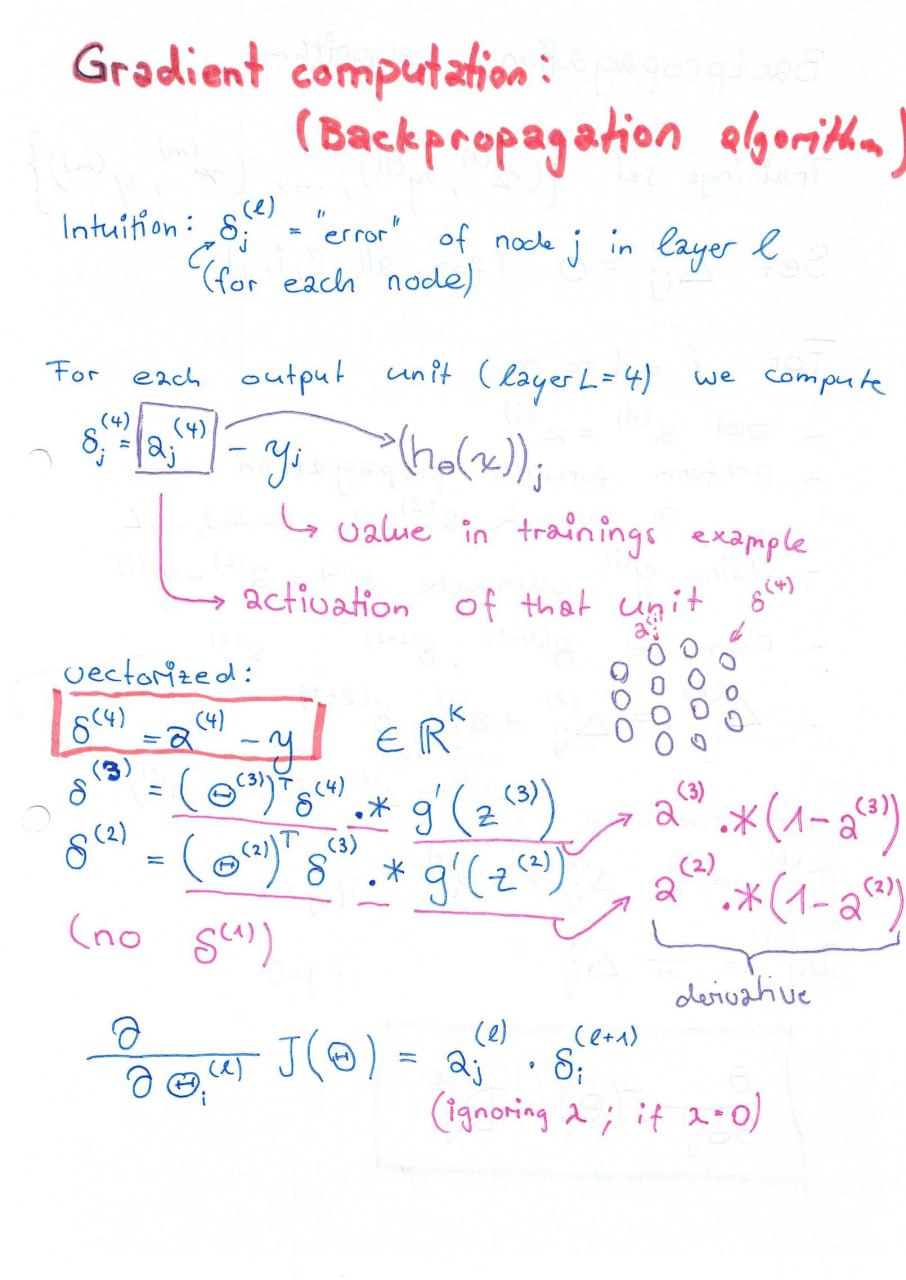 Gradient computation:
(Backpropagation algorithm)
Intuition: δ_j^(l) = "error" of node j in layer l
(for each node)
For each output unit (layer L=4) we compute
δ_j^(4) = a_j^(4) - y_j (h_Θ(x))_j
value in trainings example
activation of that unit δ^(4)
vectorized:
δ^(4) = a^(4) - y ∈ ℝ^K
δ^(3) = (Θ^(3))^T δ^(4) .* g'(z^(3)) a^(3) .* (1-a^(3))
δ^(2) = (Θ^(2))^T δ^(3) .* g'(z^(2)) a^(2) .* (1-a^(2))
(no δ^(1))
derivative
∂/∂Θ_i^(l) J(Θ) = a_j^(l) · δ_i^(l+1)
(ignoring λ; if λ=0)